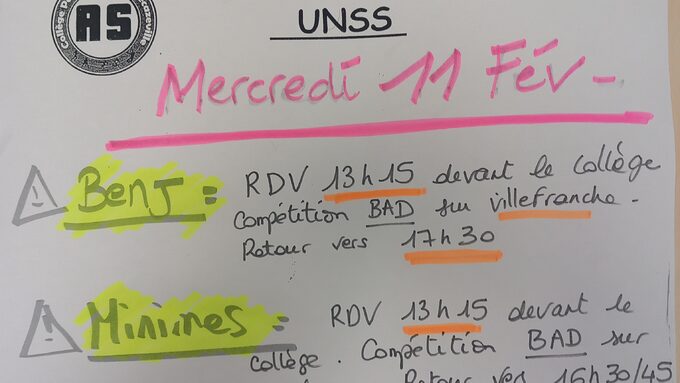 Collège
AS
UNSS
Mercredi 11 Fév -
Benj = RDV 13h15 devant le collège
Compétition BAD sur Villefranche.
Retour vers 17h30
Minimes = RDV 13h15 devant le
collège. Compétition BAD sur
Retour vers 16h30/45